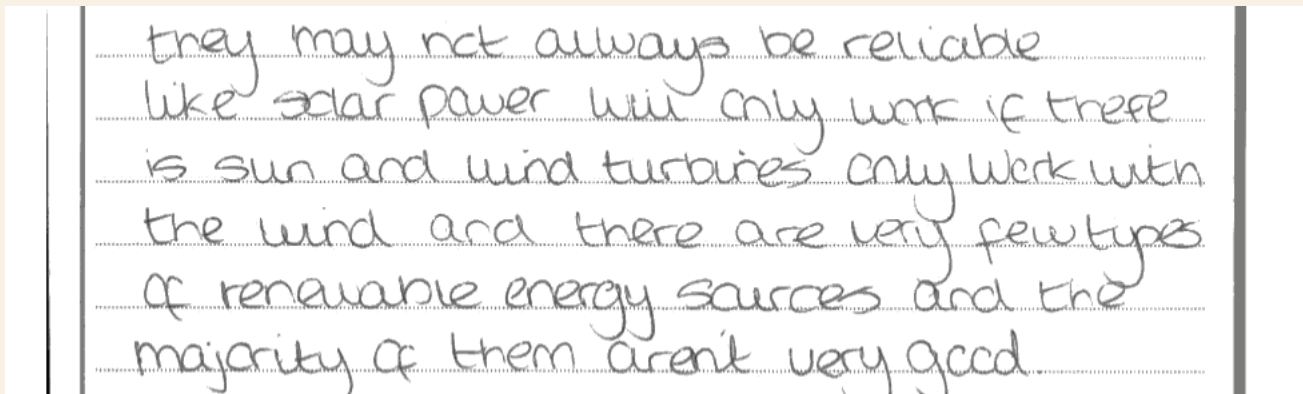 they may not always be reliable
like solar power will only work if there
is sun and wind turbines only work with
the wind and there are very few types
of renewable energy sources and the
majority of them aren't very good.